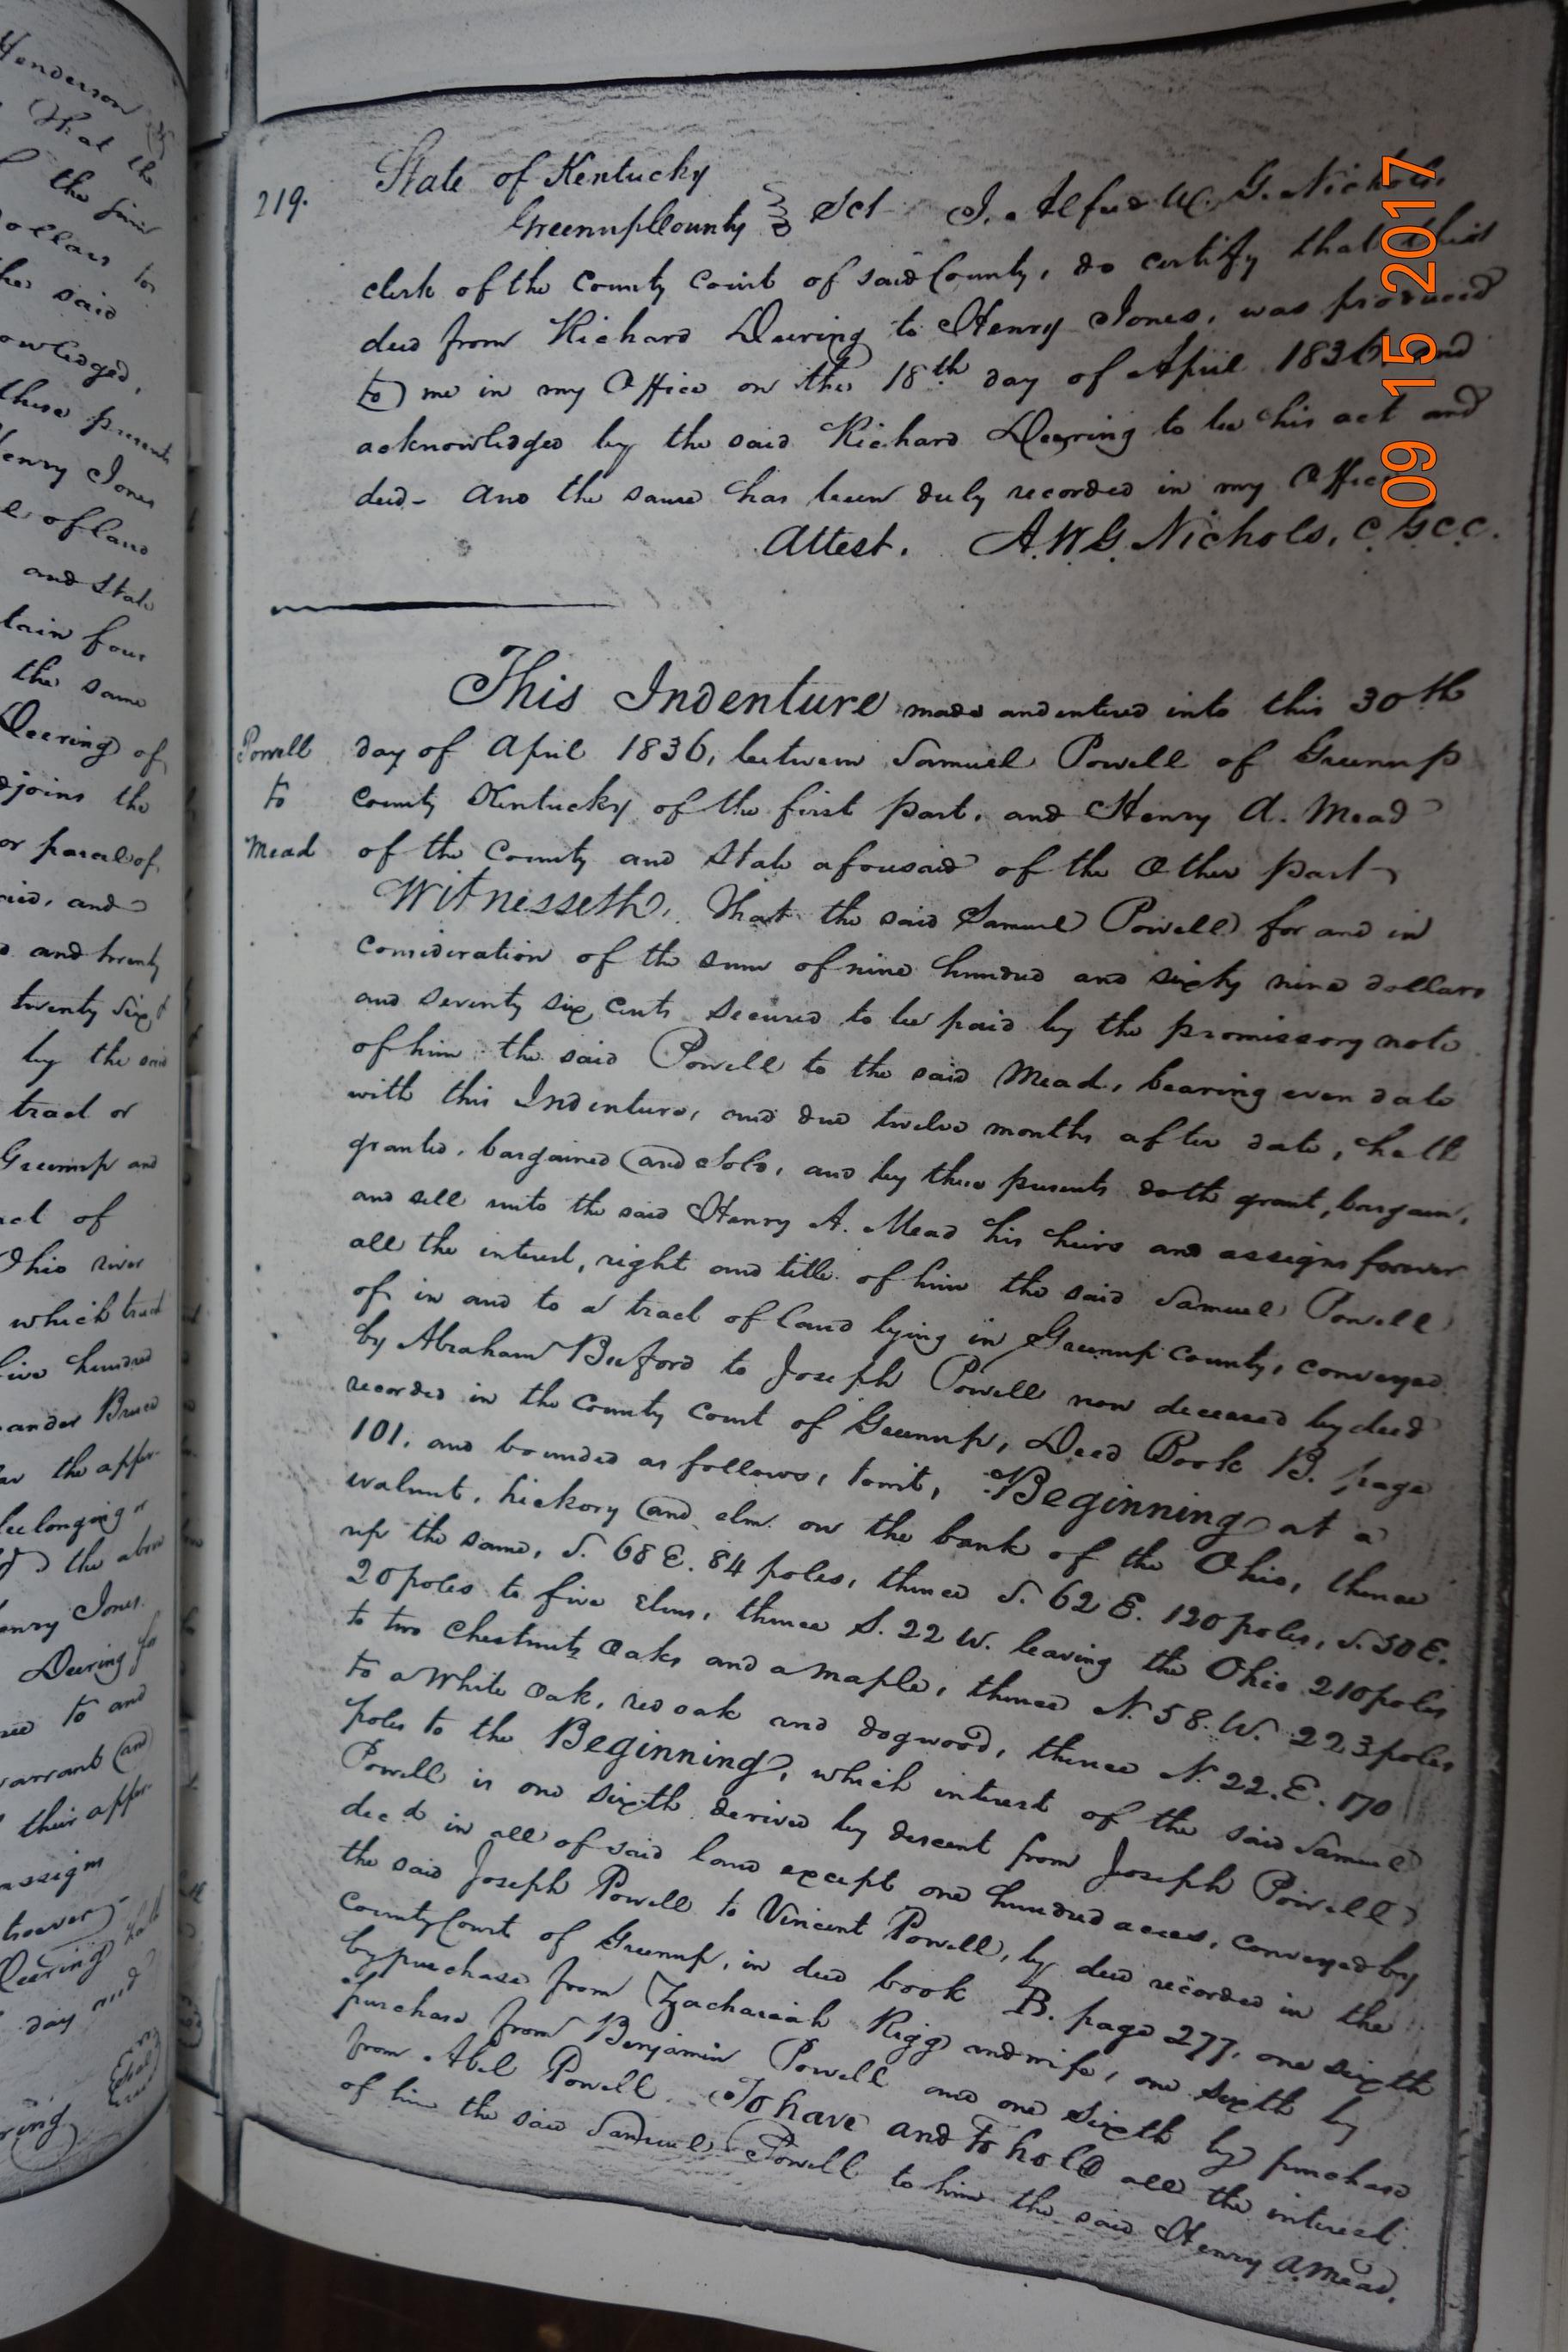 Henderson
That the
the firm
ollars to
he said
owledged,
these presents
enry Jones
l of land
and State
tain four
the same
Deering of
djoins the
or parcel of
aid, and
and twenty
twenty Sixt
by the said
tract or
Greenup and
act of
Ohio river
which tract
five hundred
ander Bruce
the appr
belonging or
the above
enry Jones
Deering
to and
arrant and
their appr
assigns
Deering hath
day and
ring
219.
State of Kentucky
Greenup County } Sct I. Alfred W. G. Nichols,
clerk of the County Court of said County, do certify that this
deed from Richard Deering to Henry Jones, was produced
to me in my Office on the 18th day of April 1836 and
acknowledged by the said Richard Deering to be his act and
deed - and the same has been duly recorded in my Office
Attest. A.W.G. Nichols, C.G.C.C.
This Indenture made and entered into this 30th
Powell
to
Mead
day of April 1836, between Samuel Powell of Greenup
County Kentucky of the first part, and Henry A. Mead
of the County and State aforesaid of the Other part
Witnesseth, That the said Samuel Powell for and in
consideration of the sum of nine hundred and sixty nine dollars
and seventy six cents secured to be paid by the promissory note
of him the said Powell to the said Mead, bearing even date
with this Indenture, and due twelve months after date, hath
granted, bargained and sold, and by these presents doth grant, bargain,
and sell unto the said Henry A. Mead his heirs and assigns forever
all the interest, right and title of him the said Samuel Powell
of in and to a tract of land lying in Greenup County, conveyed
by Abraham Buford to Joseph Powell now deceased by deed
recorded in the County Court of Greenup, Deed Book B. page
101, and bounded as follows, towit, Beginning at a
walnut, hickory and elm on the bank of the Ohio, thence
up the same, S. 68 E. 84 poles, thence S. 62 E. 120 poles, S. 50 E.
20 poles to five Elms, thence S. 22 W. leaving the Ohio 210 poles
to two Chestnutz Oaks and a maple, thence N. 58. W. 223 poles
to a White Oak, red oak and dogwood, thence N. 22. E. 170
poles to the Beginning, which interest of the said Samuel
Powell is one sixth derived by descent from Joseph Powell
decd in all of said land except one hundred acres, conveyed by
the said Joseph Powell to Vincent Powell, by deed recorded in the
County Court of Greenup, in deed book B. page 277, one sixth
by purchase from Zachariah Rigg and wife, one sixth by
purchase from Benjamin Powell and one sixth by purchase
from Abel Powell. To have and to hold all the interest
of him the said Samuel Powell to him the said Henry A. Mead,
09 15 2017